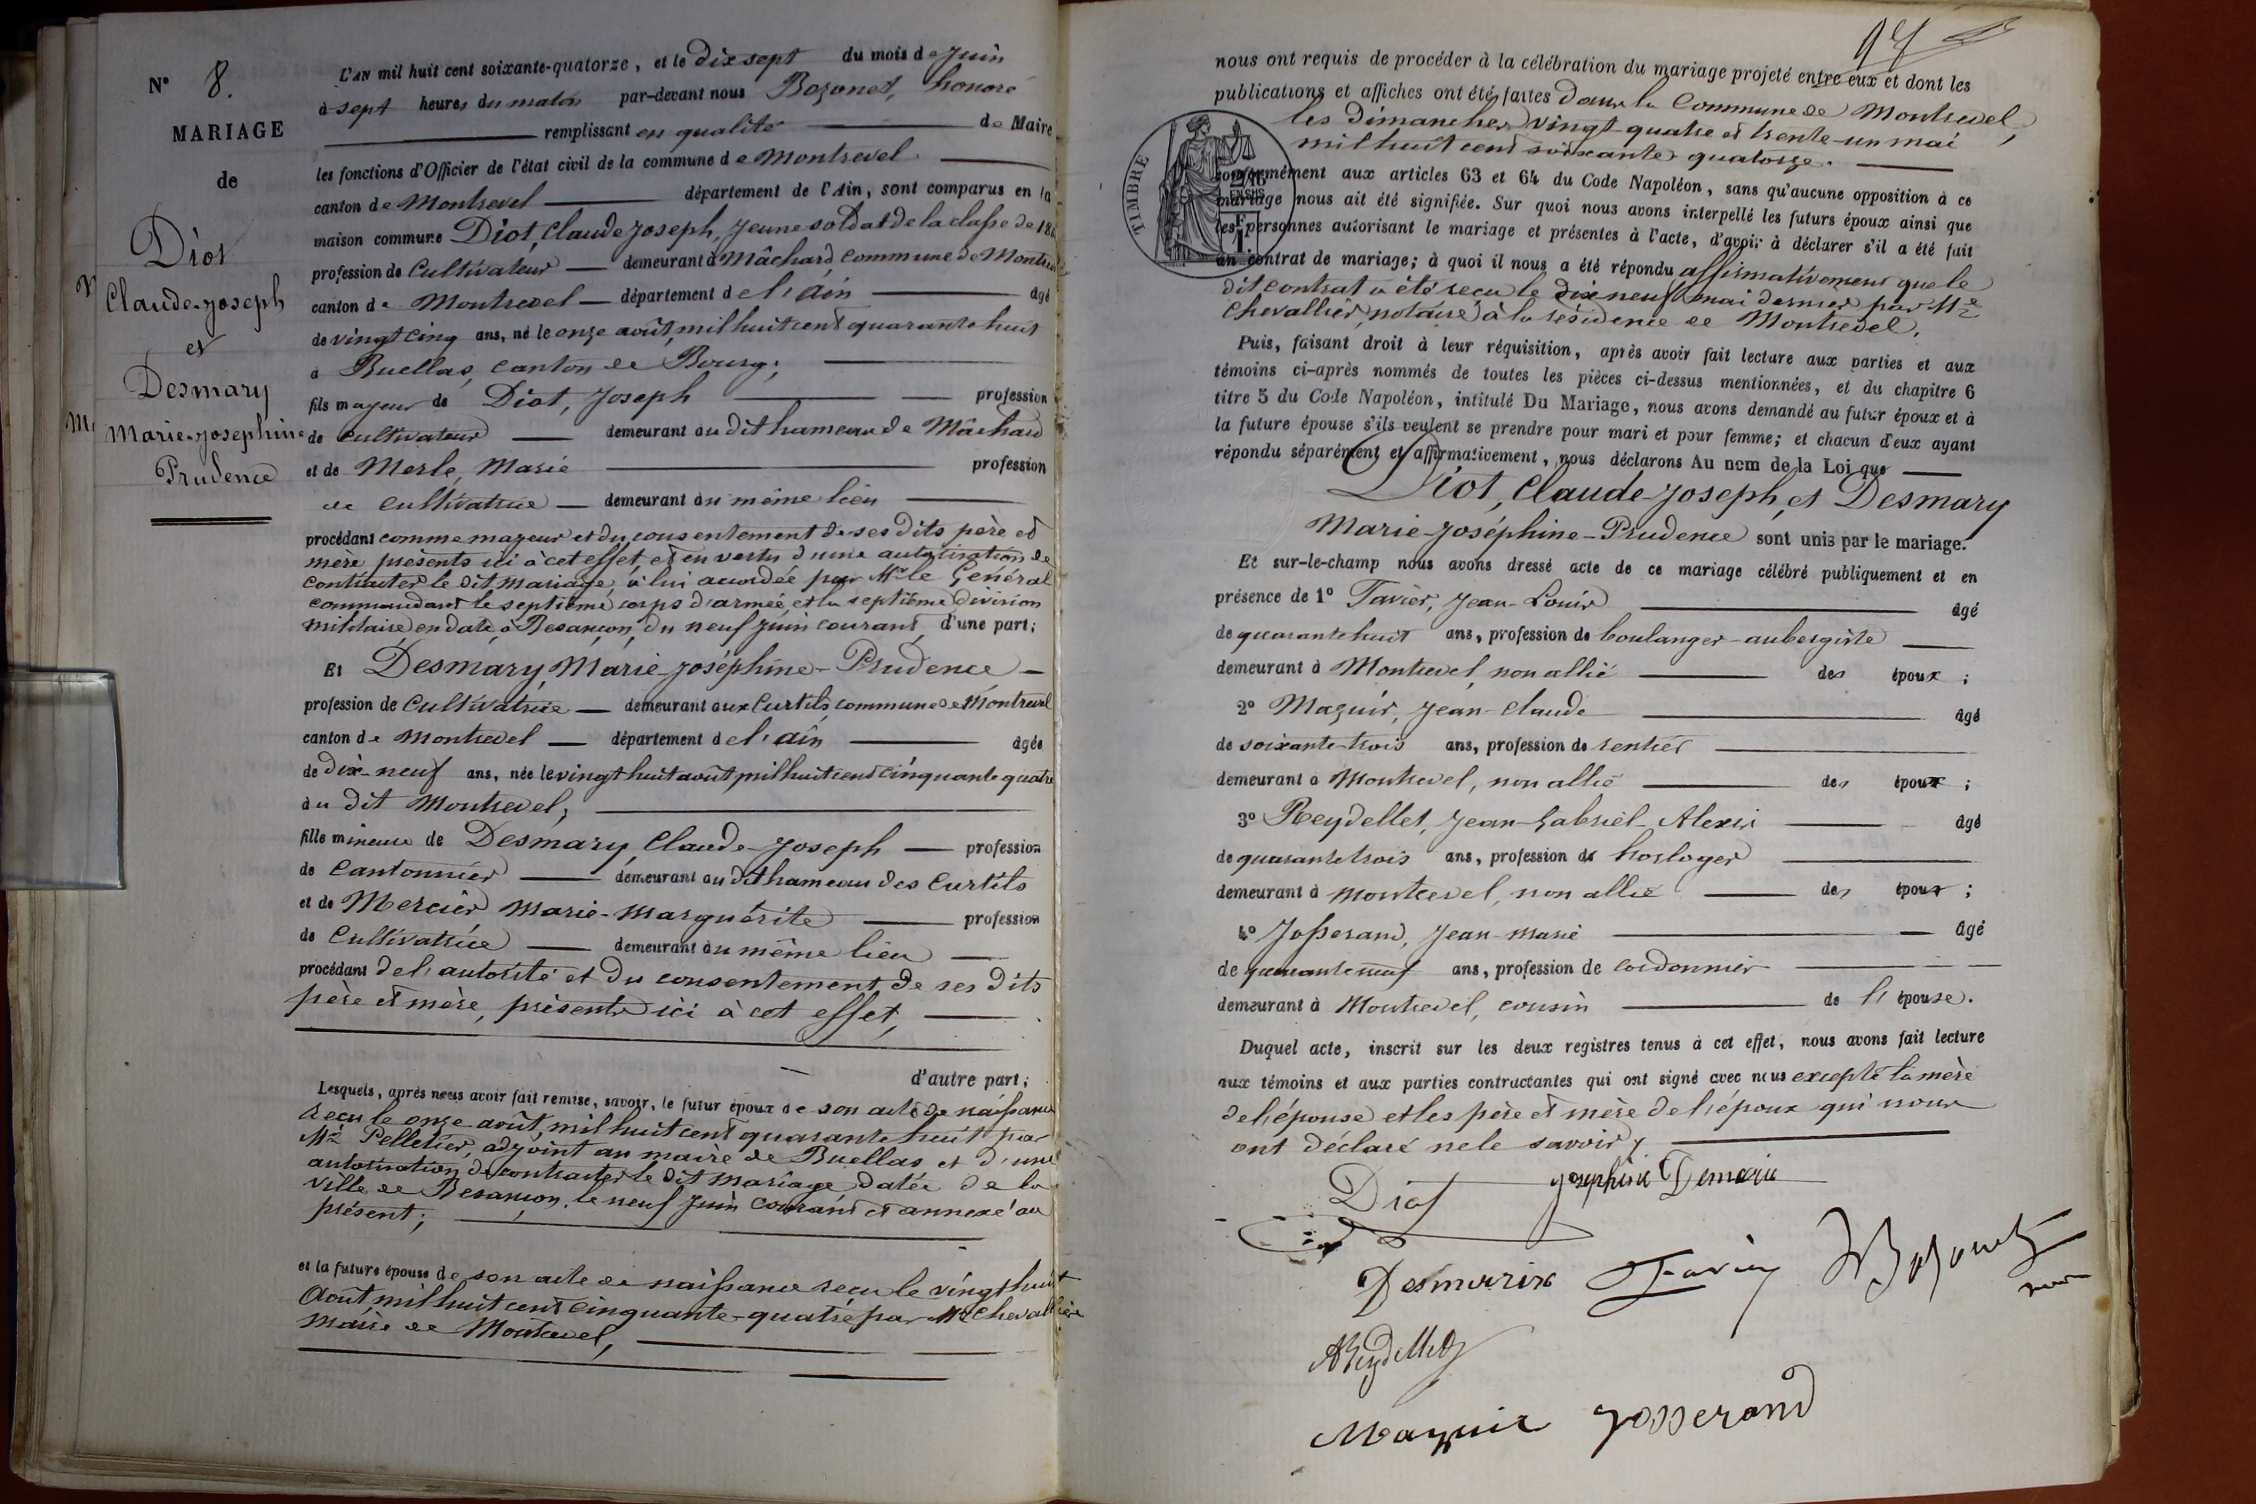 N° 8.
MARIAGE
de
Diot
Claude-Joseph
et
Desmary
Marie-Josephine
Prudence
L'AN mil huit cent soixante-quatorze, et le dix sept du mois de Juin
à sept heures du matin par-devant nous Bozonet, honoré
remplissant en qualité de Maire
les fonctions d'Officier de l'état civil de la commune de Montrevel
canton de Montrevel département de l'Ain, sont comparus en la
maison commune Diot, Claude Joseph, jeune soldat de la classe de 186
profession de Cultivateur demeurant à Mâchard commune de Montrevel
canton de Montrevel département de l'ain âgé
de vingt cinq ans, né le onze août mil huit cent quarante huit
à Buellas, canton de Bourg;
fils majeur de Diot, Joseph profession
de cultivateur demeurant au dit hameau de Mâchard
et de Merle, Marie profession
de cultivatrice demeurant au même lieu
procédant comme majeur et du consentement de ses dits père et
mère présents ici à cet effet, et en vertu d'une autorisation de
contracter le dit mariage, à lui accordée par Mr le Général
commandant le septième corps d'armée et la septième division
militaire en date à Besançon, du neuf juin courant, d'une part;
Et Desmary, Marie-Joséphine-Prudence
profession de Cultivatrice demeurant aux Curtils, commune de Montrevel
canton de Montrevel département de l'ain âgée
de dix-neuf ans, née le vingt huit août mil huit cent cinquante quatre
au dit Montrevel;
fille mineure de Desmary, Claude-Joseph profession
de Cantonnier demeurant au dit hameau des Curtils
et de Mercier Marie-Marguérite profession
de Cultivatrice demeurant au même lieu
procédant de l'autorité et du consentement de ses dits
père et mère, présents ici à cet effet,
d'autre part;
Lesquels, après nous avoir fait remise, savoir, le futur époux de son acte de naissance
reçu le onze août mil huit cent quarante huit par
Mr Pelletier, adjoint au maire de Buellas et d'une
autorisation de contracter le dit mariage datée de la
ville de Besançon, le neuf juin courant et annexé au
présent;
et la future épouse de son acte de naissance reçu le vingt huit
Août mil huit cent cinquante-quatre par Mr Chevallier
maire de Montrevel,
97
nous ont requis de procéder à la célébration du mariage projeté entre eux et dont les
publications et affiches ont été faites dans la Commune de Montrevel,
les dimanches vingt-quatre et trente-un mai
mil huit cent soixante quatorze.
TIMBRE
conformément aux articles 63 et 64 du Code Napoléon, sans qu'aucune opposition à ce
mariage nous ait été signifiée. Sur quoi nous avons interpellé les futurs époux ainsi que
les personnes autorisant le mariage et présentes à l'acte, d'avoir à déclarer s'il a été fait
un contrat de mariage; à quoi il nous a été répondu affirmativement que le
dit contrat a été reçu le dix neuf mai dernier par Me
Chevallier, notaire à la résidence de Montrevel,
Puis, faisant droit à leur réquisition, après avoir fait lecture aux parties et aux
témoins ci-après nommés de toutes les pièces ci-dessus mentionnées, et du chapitre 6
titre 5 du Code Napoléon, intitulé Du Mariage, nous avons demandé au futur époux et à
la future épouse s'ils veulent se prendre pour mari et pour femme; et chacun d'eux ayant
répondu séparément et affirmativement, nous déclarons Au nom de la Loi que
Diot, Claude-Joseph, et Desmary
Marie-Joséphine-Prudence sont unis par le mariage.
Et sur-le-champ nous avons dressé acte de ce mariage célébré publiquement et en
présence de 1° Tavier, Jean-Louis âgé
de quarante huit ans, profession de boulanger-aubergiste
demeurant à Montrevel, non allié des époux;
2° Mazuir, Jean-Claude âgé
de soixante-trois ans, profession de rentier
demeurant à Montrevel, non allié des époux;
3° Reydellet, Jean-Gabriel-Alexis âgé
de quarante trois ans, profession de horloger
demeurant à Montrevel, non allié des époux;
4° Josserand, Jean-Marie âgé
de quarante neuf ans, profession de cordonnier
demeurant à Montrevel, cousin de l'épouse.
Duquel acte, inscrit sur les deux registres tenus à cet effet, nous avons fait lecture
aux témoins et aux parties contractantes qui ont signé avec nous excepté la mère
de l'épouse et les père et mère de l'époux qui nous
ont déclaré ne le savoir,
Diot Josephine Demarie
Desmarix Tavier Bozonet
AReydellet
Mazuir Josserand